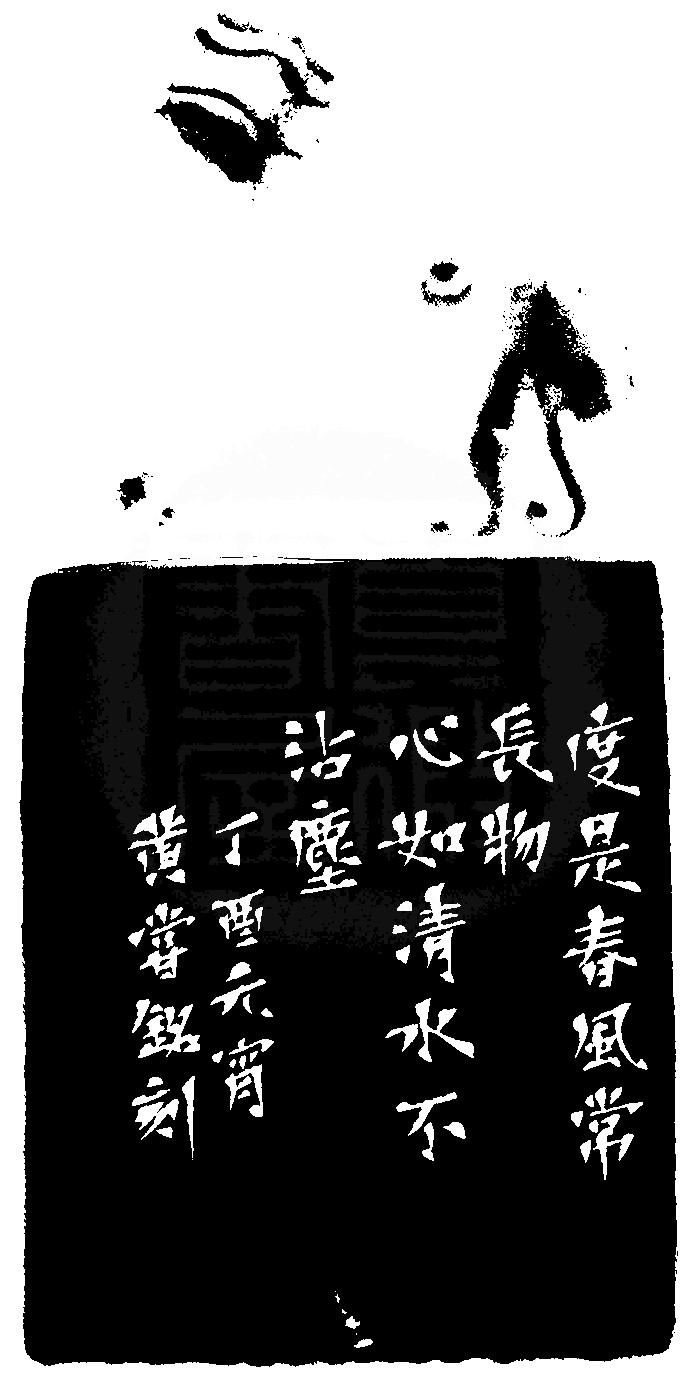 度是春風常
長物
心如清水不
沾塵
丁酉元宵
黄嘗銘刻